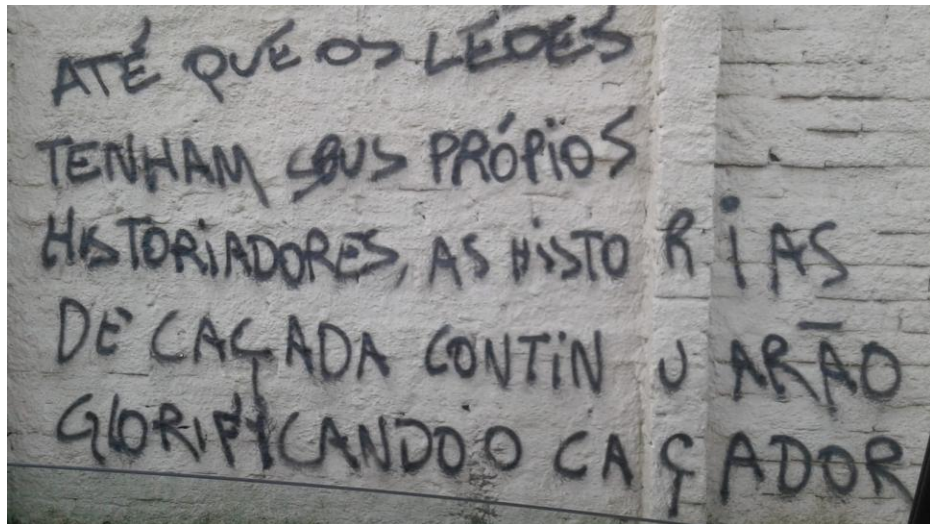 ATÉ QUE OS LEÕES
TENHAM SEUS PRÓPIOS
HISTORIADORES, AS HISTORIAS
DE CAÇADA CONTINUARÃO
GLORIFICANDO O CAÇADOR